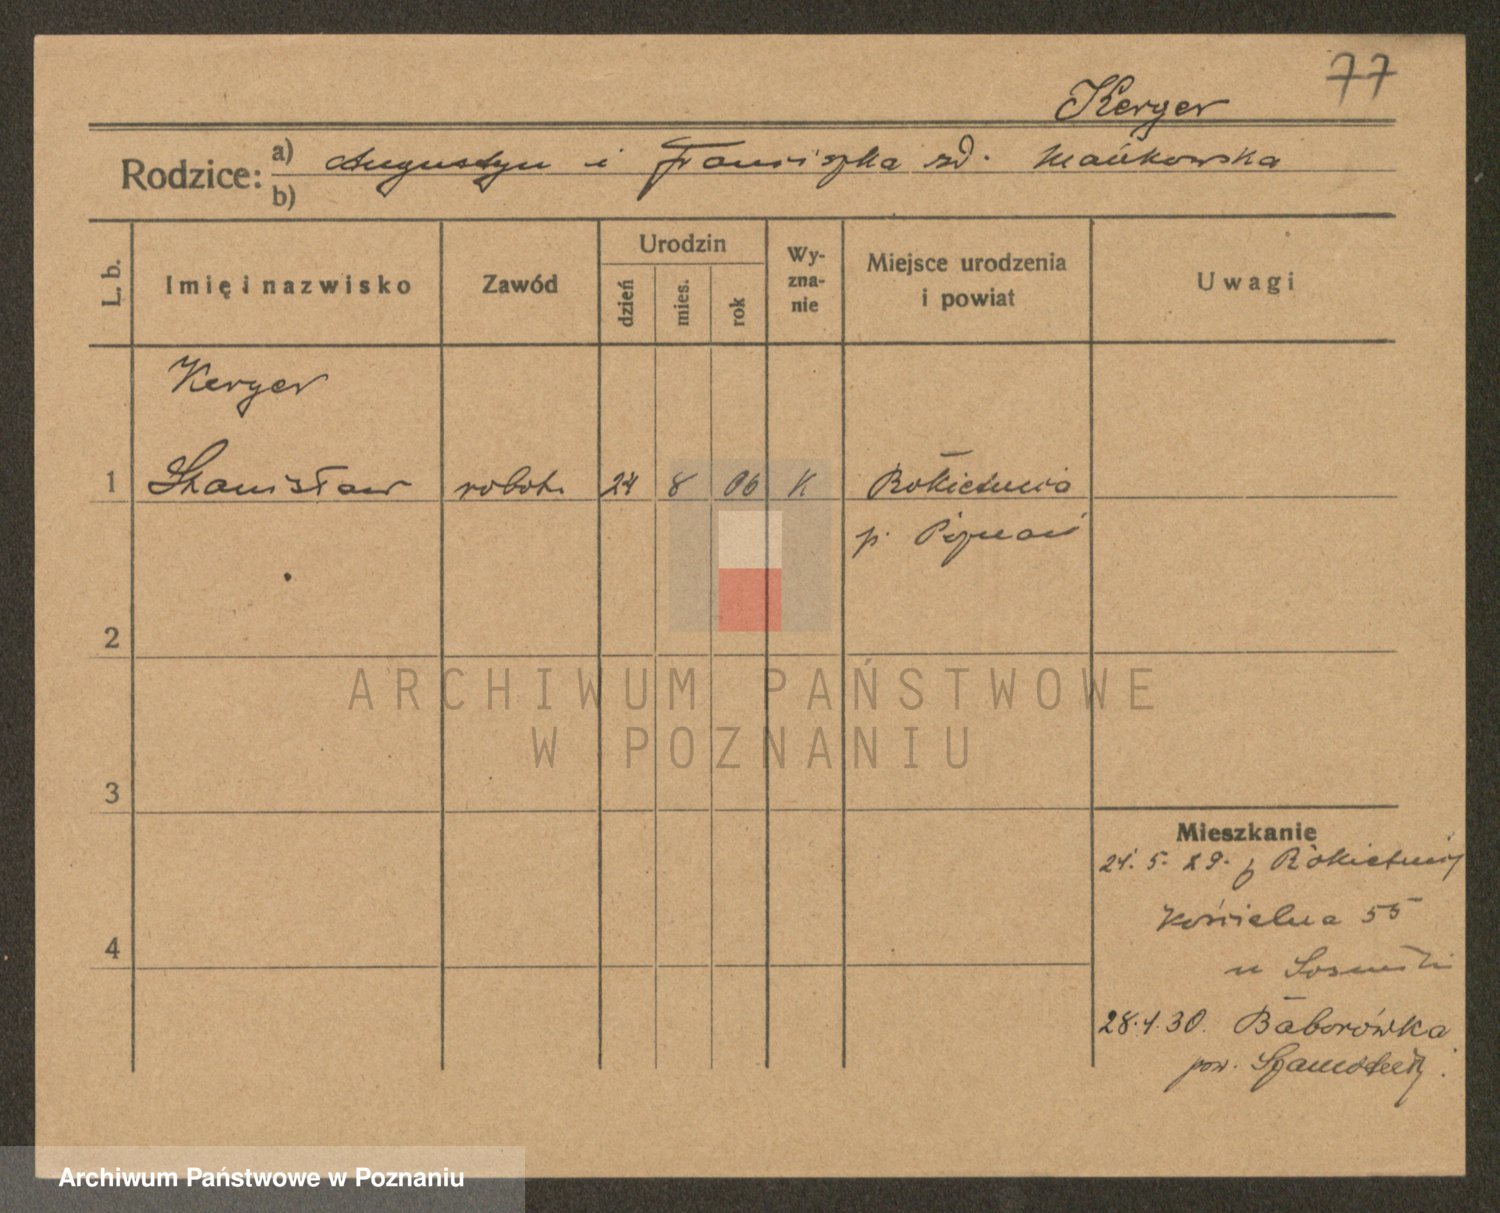 77
Kerger
Rodzice: a) Augustyn i Franciszka zd. Mańkowska
b)
L. b. Imię i nazwisko Zawód Urodzin dzień mies. rok Wy-zna-nie Miejsce urodzenia i powiat Uwagi
Kerger
1 Stanisław robotn. 24 8 06 K Rokietnica
p. Poznań
2
ARCHIWUM PAŃSTWOWE
W POZNANIU
3
Mieszkanie
24. 5. 29. z Rokietnicy
Kościelna 55
u
4
28.1.30. Baborówka
pow. Szamotuły
Archiwum Państwowe w Poznaniu